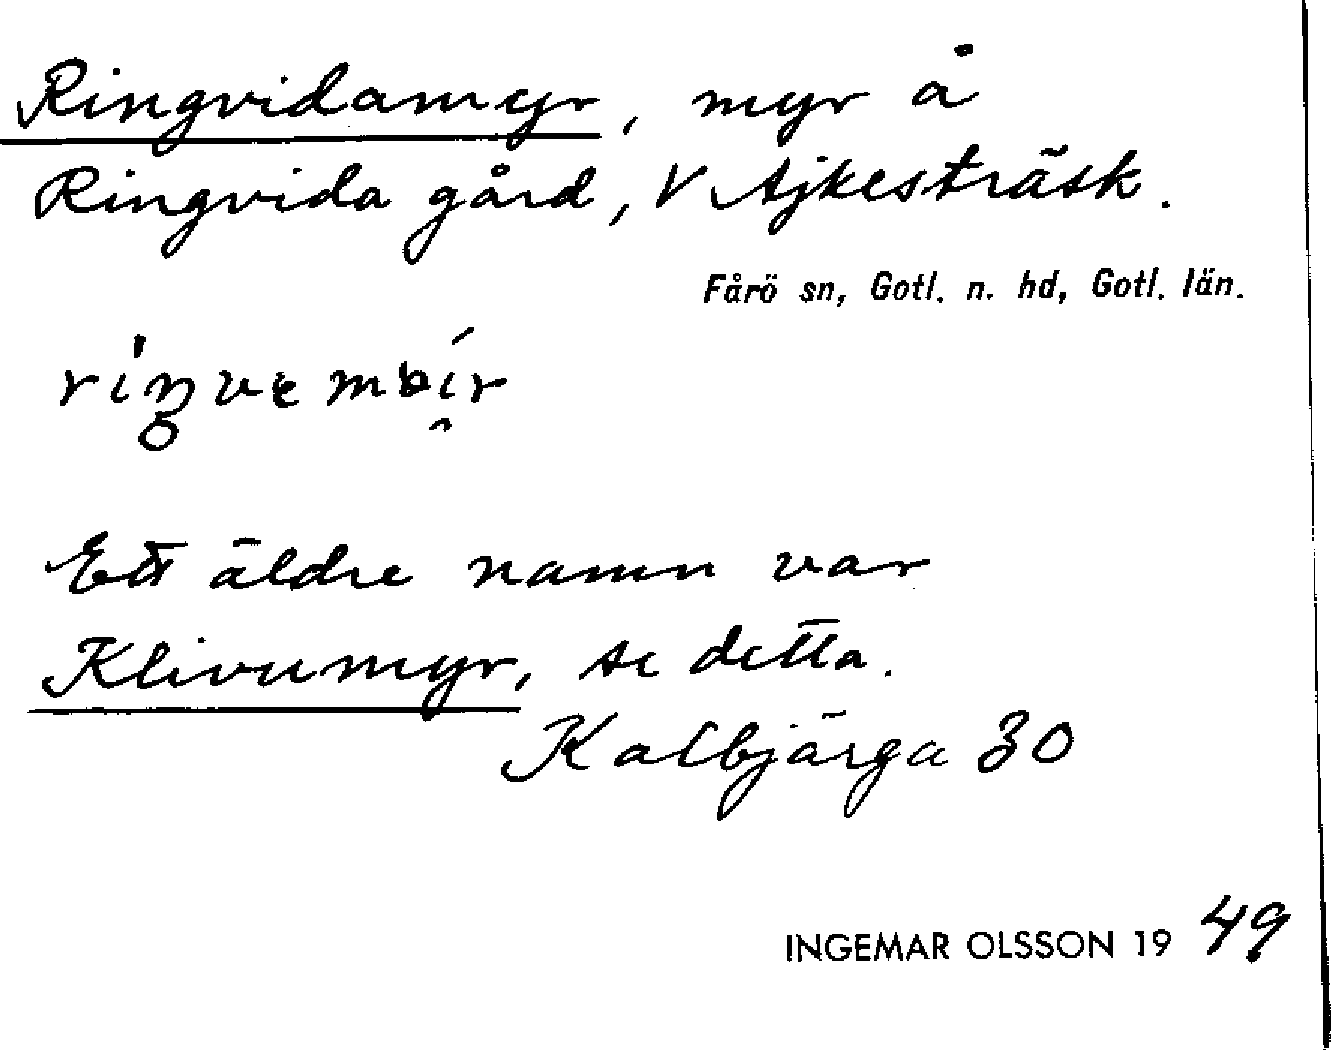 Ringvidamyr, myr å
Ringvida gård, V Ajkesträsk.
Fårö sn, Gotl. n. hd, Gotl. län.
Ett äldre namn var
Klivumyr, se detta.
Kalbjärga 30
INGEMAR OLSSON 19 49